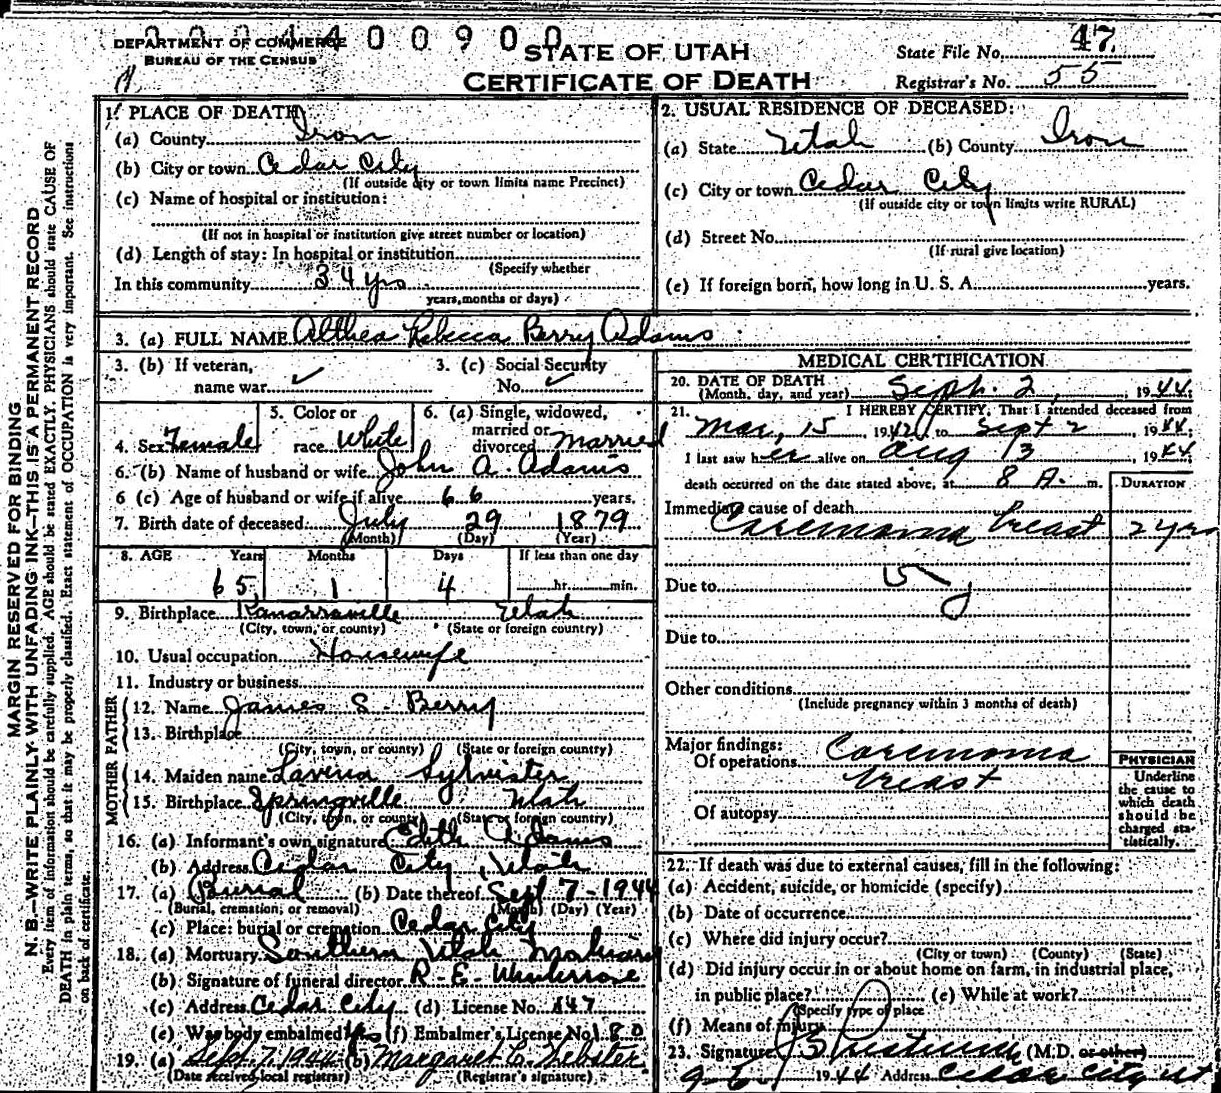 0001400900
DEPARTMENT OF COMMERCE
BUREAU OF THE CENSUS
STATE OF UTAH
CERTIFICATE OF DEATH
State File No. 47
Registrar's No. 55
MARGIN RESERVED FOR BINDING
N. B.—WRITE PLAINLY WITH UNFADING INK—THIS IS A PERMANENT RECORD
Every item of information should be carefully supplied. AGE should be stated EXACTLY. PHYSICIANS should state CAUSE OF
DEATH in plain terms, so that it may be properly classified. Exact statement of OCCUPATION is very important. See instructions
on back of certificate.
1. PLACE OF DEATH
(a) County Iron
(b) City or town Cedar City
(If outside city or town limits name Precinct)
(c) Name of hospital or institution:
(If not in hospital or institution give street number or location)
(d) Length of stay: In hospital or institution
(Specify whether
In this community 34 yrs
years, months or days)
2. USUAL RESIDENCE OF DECEASED:
(a) State Utah (b) County Iron
(c) City or town Cedar City
(If outside city or town limits write RURAL)
(d) Street No.
(If rural give location)
(e) If foreign born, how long in U. S. A. years.
3. (a) FULL NAME Althea Rebecca Berry Adams
3. (b) If veteran,
name war ✓
3. (c) Social Security
No. ✓
4. Sex Female
5. Color or
race White
6. (a) Single, widowed,
married or
divorced married
6. (b) Name of husband or wife John A. Adams
6 (c) Age of husband or wife if alive 66 years.
7. Birth date of deceased July 29 1879
(Month) (Day) (Year)
8. AGE Years Months Days If less than one day
65 1 4 hr. min.
9. Birthplace Kanarraville Utah
(City, town, or county) (State or foreign country)
10. Usual occupation Housewife
11. Industry or business
FATHER
12. Name James S. Berry
13. Birthplace
(City, town, or county) (State or foreign country)
MOTHER
14. Maiden name Lavina Sylvister
15. Birthplace Springville Utah
(City, town, or county) (State or foreign country)
16. (a) Informant's own signature Edith Adams
(b) Address Cedar City, Utah
17. (a) Burial (b) Date thereof Sept 7-1944
(Burial, cremation, or removal) (Month) (Day) (Year)
(c) Place: burial or cremation Cedar City
18. (a) Mortuary Southern Utah Mortuary
(b) Signature of funeral director R-E-
(c) Address Cedar City (d) License No. 147
(e) Was body embalmed Yes (f) Embalmer's License No. 180
19. (a) Sept. 7, 1944 (b) Margaret C. Webster
(Date received local registrar) (Registrar's signature)
MEDICAL CERTIFICATION
20. DATE OF DEATH
(Month, day, and year) Sept. 2, 1944.
21. I HEREBY CERTIFY, That I attended deceased from
Mar, 15, 1942, to Sept 2, 1944;
I last saw her alive on Aug 13, 1944
death occurred on the date stated above, at 8 A. m.
DURATION
Immediate cause of death
Carcinoma breast 2 yrs
Due to
Due to
Other conditions
(Include pregnancy within 3 months of death)
Major findings:
Of operations Carcinoma
breast
Of autopsy
PHYSICIAN
Underline
the cause to
which death
should be
charged sta-
tistically.
22. If death was due to external causes, fill in the following:
(a) Accident, suicide, or homicide (specify)
(b) Date of occurrence
(c) Where did injury occur?
(City or town) (County) (State)
(d) Did injury occur in or about home on farm, in industrial place,
in public place? (e) While at work?
(Specify type of place
(f) Means of injury
23. Signature (M.D. or other)
9-6, 1944 Address Cedar City Ut